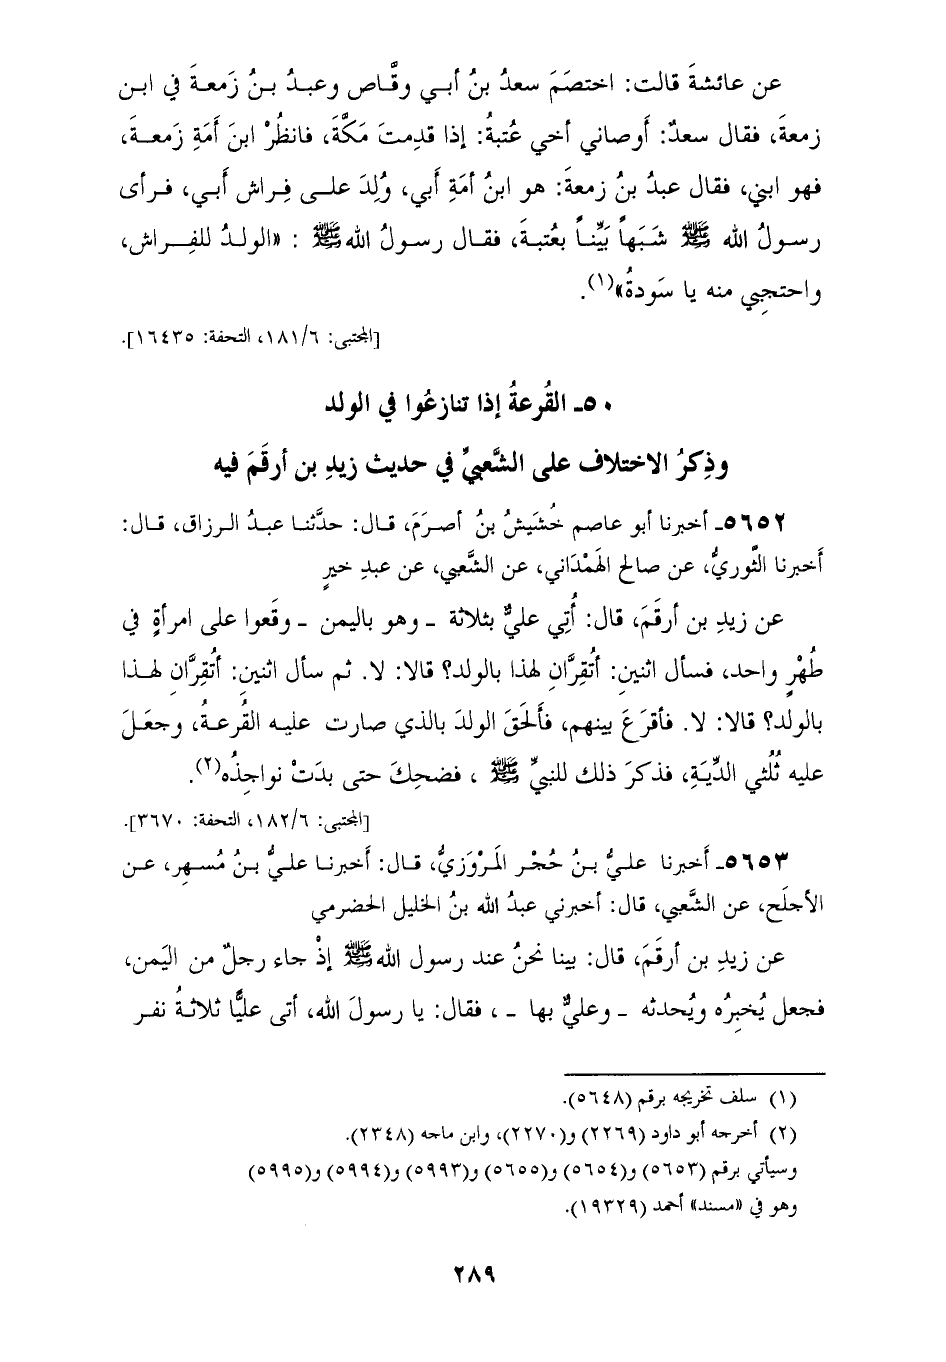 عن عائشةَ قالت: اختصَمَ سعدُ بنُ أبي وقَّاص وعبدُ بنُ زَمعةَ في ابن
زمعةَ، فقال سعدٌ: أَوصاني أخي عُتبةُ: إذا قدِمتَ مَكَّةَ، فانظُرْ ابنَ أَمَةِ زَمعةَ،
فهو ابني، فقال عبدُ بنُ زمعةَ: هو ابنُ أمَةِ أَبي، وُلِدَ على فِراش أَبي، فرأى
رسولُ الله ﷺ شَبَهاً بَيِّناً بعُتبةَ، فقال رسولُ الله ﷺ : «الولدُ للفِراش،
واحتجِبي منه يا سَودةُ»(١).
[المجتبى: ١٨١/٦، التحفة: ١٦٤٣٥].
٥٠ـ القُرعةُ إذا تنازعُوا في الولد
وذِكرُ الاختلاف على الشَّعبيِّ في حديث زيدِ بن أرقَمَ فيه
٥٦٥٢ـ أخبرنا أبو عاصم خُشَيشُ بنُ أصرَمَ، قال: حدَّثنا عبدُ الرزاق، قال:
أَخبرنا الثَّوريُّ، عن صالح الهَمْدَاني، عن الشَّعبي، عن عبدِ خيرٍ
عن زيدِ بن أرقَمَ، قال: أُتِي عليٌّ بثلاثة ـ وهو باليمن ـ وقَعوا على امرأةٍ في
طُهْرٍ واحد، فسأل اثنينِ: أتُقِرَّانِ لهذا بالولد؟ قالا: لا. ثم سأل اثنين: أتُقِرَّانِ لهذا
بالولد؟ قالا: لا. فأقرَعَ بينهم، فأَلحَقَ الولدَ بالذي صارت عليه القُرعةُ، وجعَلَ
عليه ثُلُثي الدِّيَةِ، فذكرَ ذلك للنبيِّ ﷺ ، فضحِكَ حتى بدَتْ نواجِذُه(٢).
[المجتبى: ١٨٢/٦، التحفة: ٣٦٧٠].
٥٦٥٣ـ أَخبرنا عليُّ بنُ حُجْر المَرْوَزيُّ، قال: أَخبرنا عليُّ بنُ مُسهِر، عن
الأجلَح، عن الشَّعبي، قال: أخبرني عبدُ الله بنُ الخليل الحضرمي
عن زيدِ بن أرقَمَ، قال: بينا نحنُ عند رسول الله ﷺ إذْ جاء رجلٌ من اليَمن،
فجعل يُخبِرُه ويُحدثه ـ وعليٌّ بها ـ ، فقال: يا رسولَ الله، أتى عليًّا ثلاثةُ نفر
(١) سلف تخريجه برقم (٥٦٤٨).
(٢) أخرجه أبو داود (٢٢٦٩) و(٢٢٧٠)، وابن ماجه (٢٣٤٨).
وسيأتي برقم (٥٦٥٣) و(٥٦٥٤) و(٥٦٥٥) و(٥٩٩٣) و(٥٩٩٤) و(٥٩٩٥)
وهو في «مسند» أحمد (١٩٣٢٩).
٢٨٩